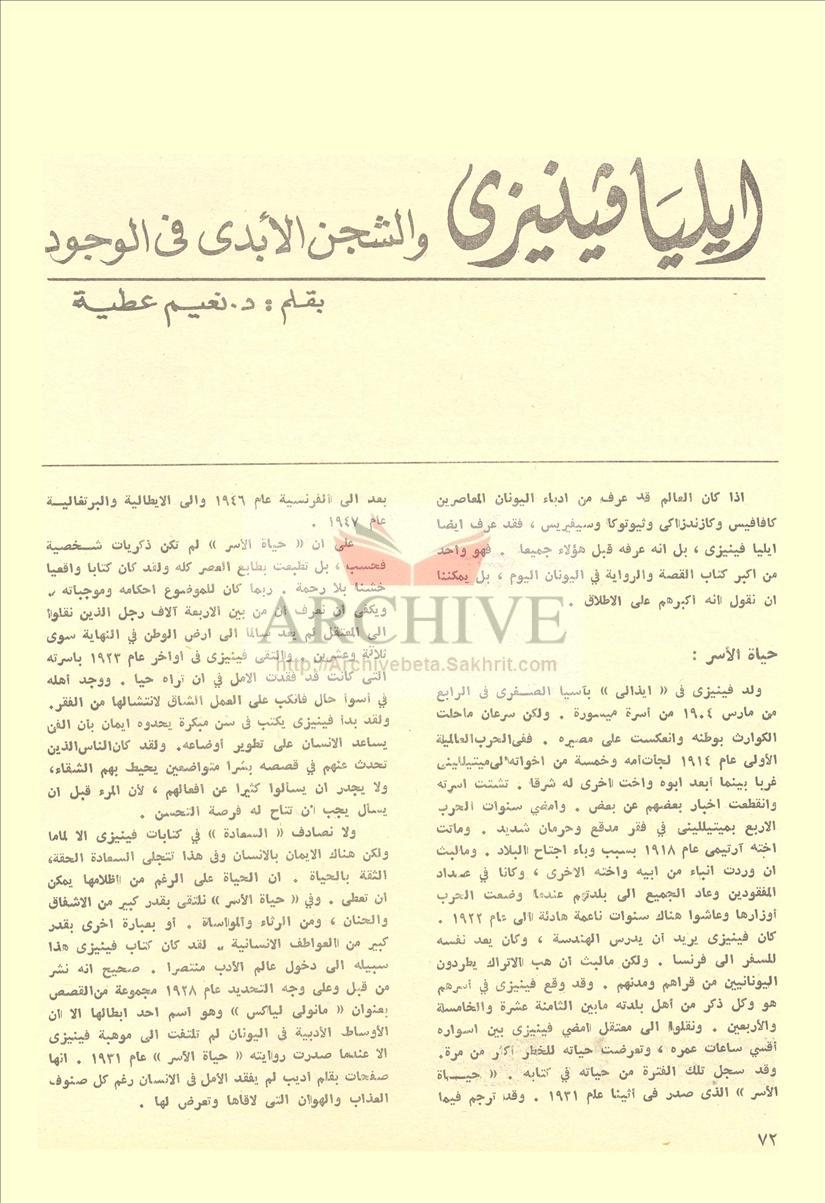 ايليا ڤينيزى والشجن الأبدى فى الوجود
بقلم : د. نعيم عطية
اذا كان العالم قد عرف من ادباء اليونان المعاصرين
كافافيس وكازندزاكى وثيوتوكا وسيفيريس ، فقد عرف ايضا
ايليا فينيزى ، بل انه عرفه قبل هؤلاء جميعا . فهو واحد
من اكبر كتاب القصة والرواية في اليونان اليوم ، بل يمكننا
ان نقول انه اكبرهم على الاطلاق .
حياة الأسر :
ولد فينيزى فى « ايذالى » بآسيا الصغرى فى الرابع
من مارس ١٩٠٤ من أسرة ميسورة . ولكن سرعان ماحلت
الكوارث بوطنه وانعكست على مصيره . ففى الحرب العالمية
الأولى عام ١٩١٤ لجأت أمه وخمسة من اخواته الى ميتيلينى
غربا بينما أبعد ابوه واخت اخرى له شرقا . تشتت اسرته
وانقطعت اخبار بعضهم عن بعض . وامضى سنوات الحرب
الاربع بميتيللينى فى فقر مدقع وحرمان شديد . وماتت
اخته آرتيمى عام ١٩١٨ بسبب وباء اجتاح البلاد . ومالبث
ان وردت انباء من ابيه واخته الاخرى ، وكانا فى عداد
المفقودين وعاد الجميع الى بلدتهم عندما وضعت الحرب
أوزارها وعاشوا هناك سنوات ناعمة هادئة الى عام ١٩٢٢ .
كان فينيزى يريد أن يدرس الهندسة ، وكان يعد نفسه
للسفر الى فرنسا . ولكن مالبث أن هب الاتراك يطردون
اليونانيين من قراهم ومدنهم . وقد وقع فينيزى فى أسرهم
هو وكل ذكر من أهل بلدته مابين الثامنة عشرة والخامسة
والأربعين . ونقلوا الى معتقل امضى فينيزى بين اسواره
أقسى ساعات عمره ، وتعرضت حياته للخطر اكثر من مرة.
وقد سجل تلك الفترة من حياته فى كتابه . « حيــاة
الأسر » الذى صدر فى أثينا عام ١٩٣١ . وقد ترجم فيما
بعد الى الفرنسية عام ١٩٤٦ والى الايطالية والبرتغالية
عام ١٩٤٧ .
على ان « حياة الأسر » لم تكن ذكريات شــخصية
فحسب ، بل تطبعت بطابع العصر كله ولقد كان كتابا واقعيا
خشنا بلا رحمة . ربما كان للموضوع احكامه وموجباته ..
ويكفى ان نعرف أن من بين الاربعة آلاف رجل الذين نقلوا
الى المعتقل لم يعد سالما الى ارض الوطن في النهاية سوى
ثلاثة وعشرين . والتقى فينيزى فى اواخر عام ١٩٢٣ باسرته
التى كانت قد فقدت الامل في ان تراه حيا . ووجد أهله
في أسوأ حال فانكب على العمل الشاق لانتشالها من الفقر.
ولقد بدأ فينيزى يكتب فى سن مبكرة يحدوه ايمان بأن الفن
يساعد الانسان على تطوير أوضاعه. ولقد كان الناس الذين
تحدث عنهم في قصصه بشرا متواضعين يحيط بهم الشقاء،
ولا يجدر ان يسالوا كثيرا عن افعالهم ، لأن المرء قبل ان
يسأل يجب ان تتاح له فرصة التحسن .
ولا نصادف « السعادة » في كتابات فينيزى الا لماما
ولكن هناك الايمان بالانسان وفى هذا تتجلى السعادة الحقة،
الثقة بالحياة . ان الحياة على الرغم من اظلامها يمكن
ان تعطى . وفي « حياة الأسر » نلتقى بقدر كبير من الاشفاق
والحنان ، ومن الرثاء والمواساة . أو بعبارة اخرى بقدر
كبير من العواطف الانسانية .. لقد كان كتاب فينيزى هذا
سبيله الى دخول عالم الأدب منتصرا . صحيح انه نشر
من قبل وعلى وجه التحديد عام ١٩٢٨ مجموعة من القصص
بعنوان « مانولى لياكس » وهو اسم احد ابطالها الا ان
الأوساط الأدبية في اليونان لم تلتفت الى موهبة فينيزى
الا عندما صدرت روايته « حياة الأسر » عام ١٩٣١ . انها
صفحات بقلم اديب لم يفقد الأمل فى الانسان رغم كل صنوف
العذاب والهوان التى لاقاها وتعرض لها .
٧٢
ARCHIVE
http://Archivebeta.Sakhrit.com